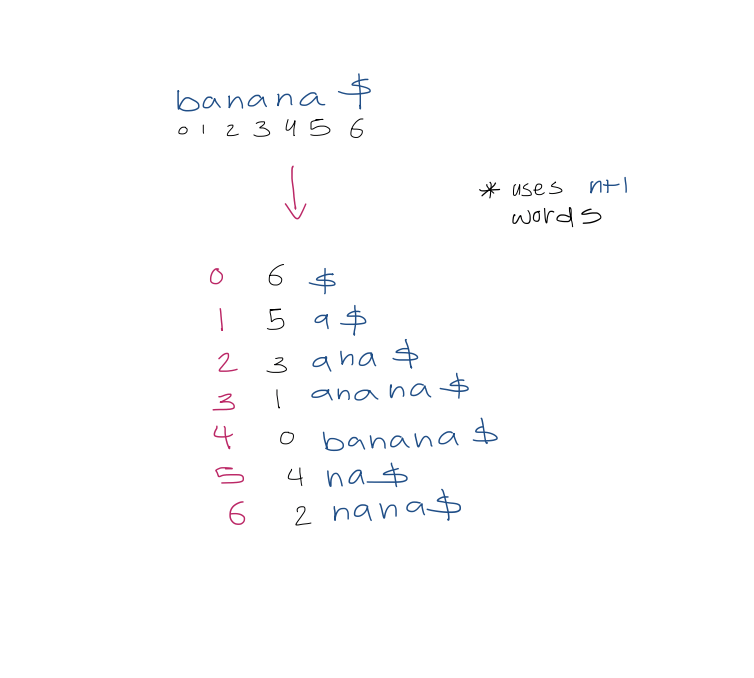 banana $
0 1 2 3 4 5 6
* uses n+1
words
0 6 $
1 5 a $
2 3 ana $
3 1 anana $
4 0 banana $
5 4 na $
6 2 nana $